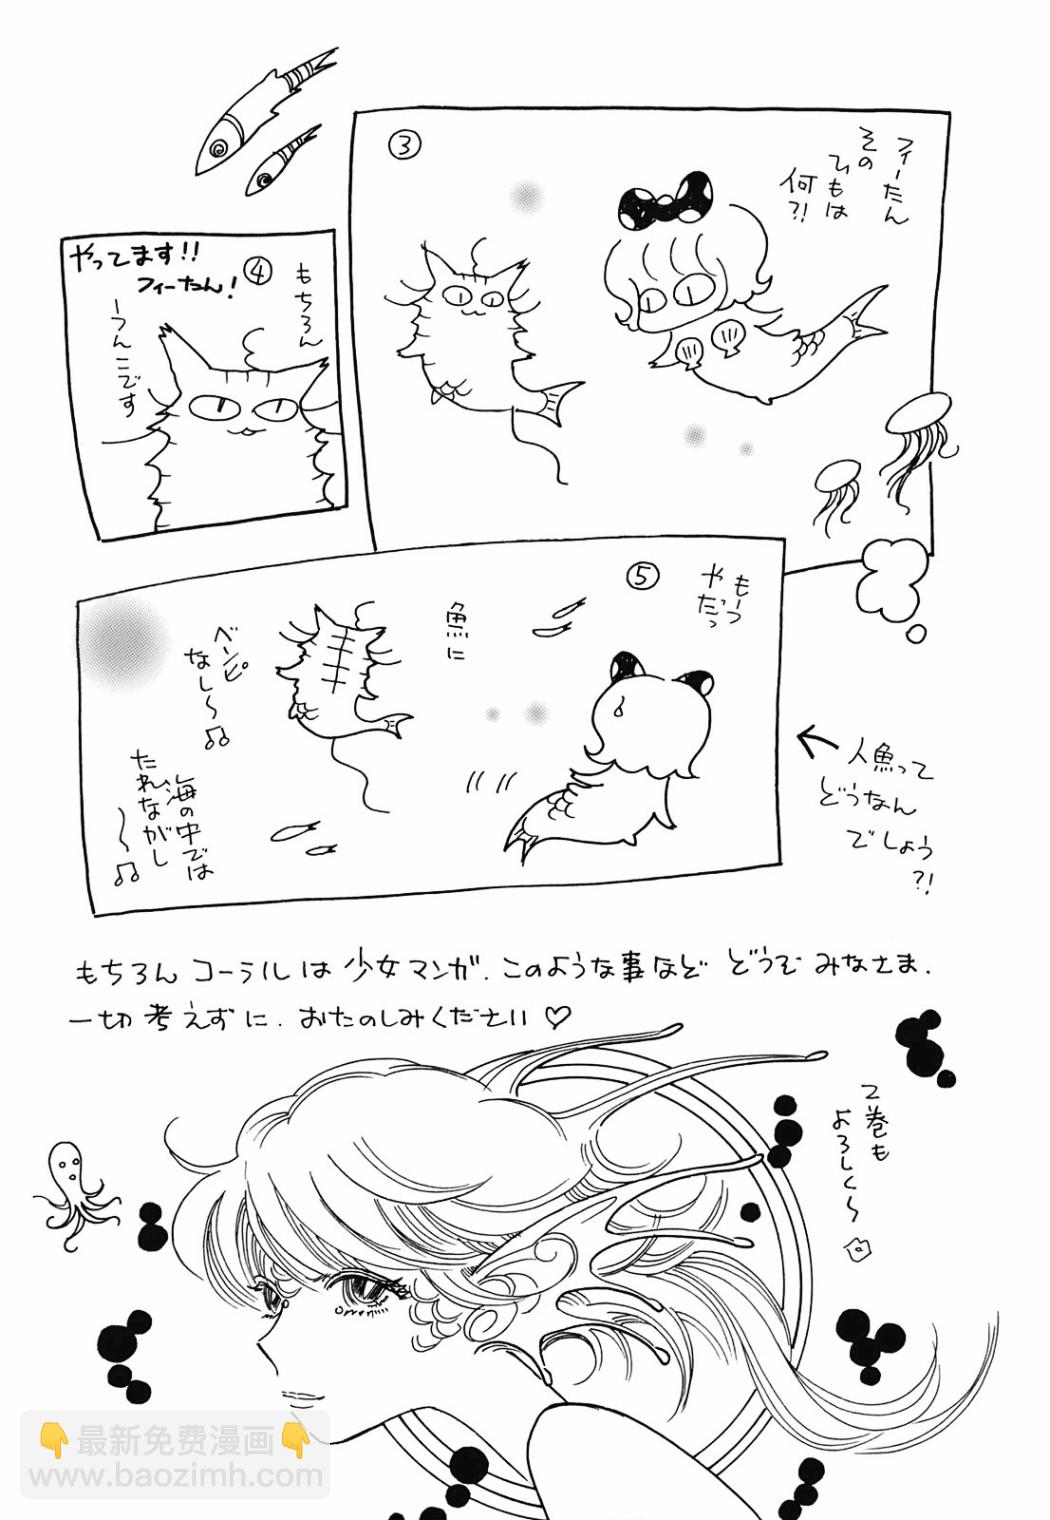 ③
フィーたん
その
ひもは
何?!
④
やってます!!
フィーたん!
もちろん
ーうんこです
⑤
もーっ
やだっ
魚に
ベーンピ
なし〜♪
海の中では
たれながし
〜♪
人魚って
どうなん
でしょう
?!
もちろん コーラルは 少女マンガ.このような事など どうぞ みなさま.
一切 考えずに.おたのしみください♡
2巻も
よろしく〜
最新免费漫画
www.baozimh.com